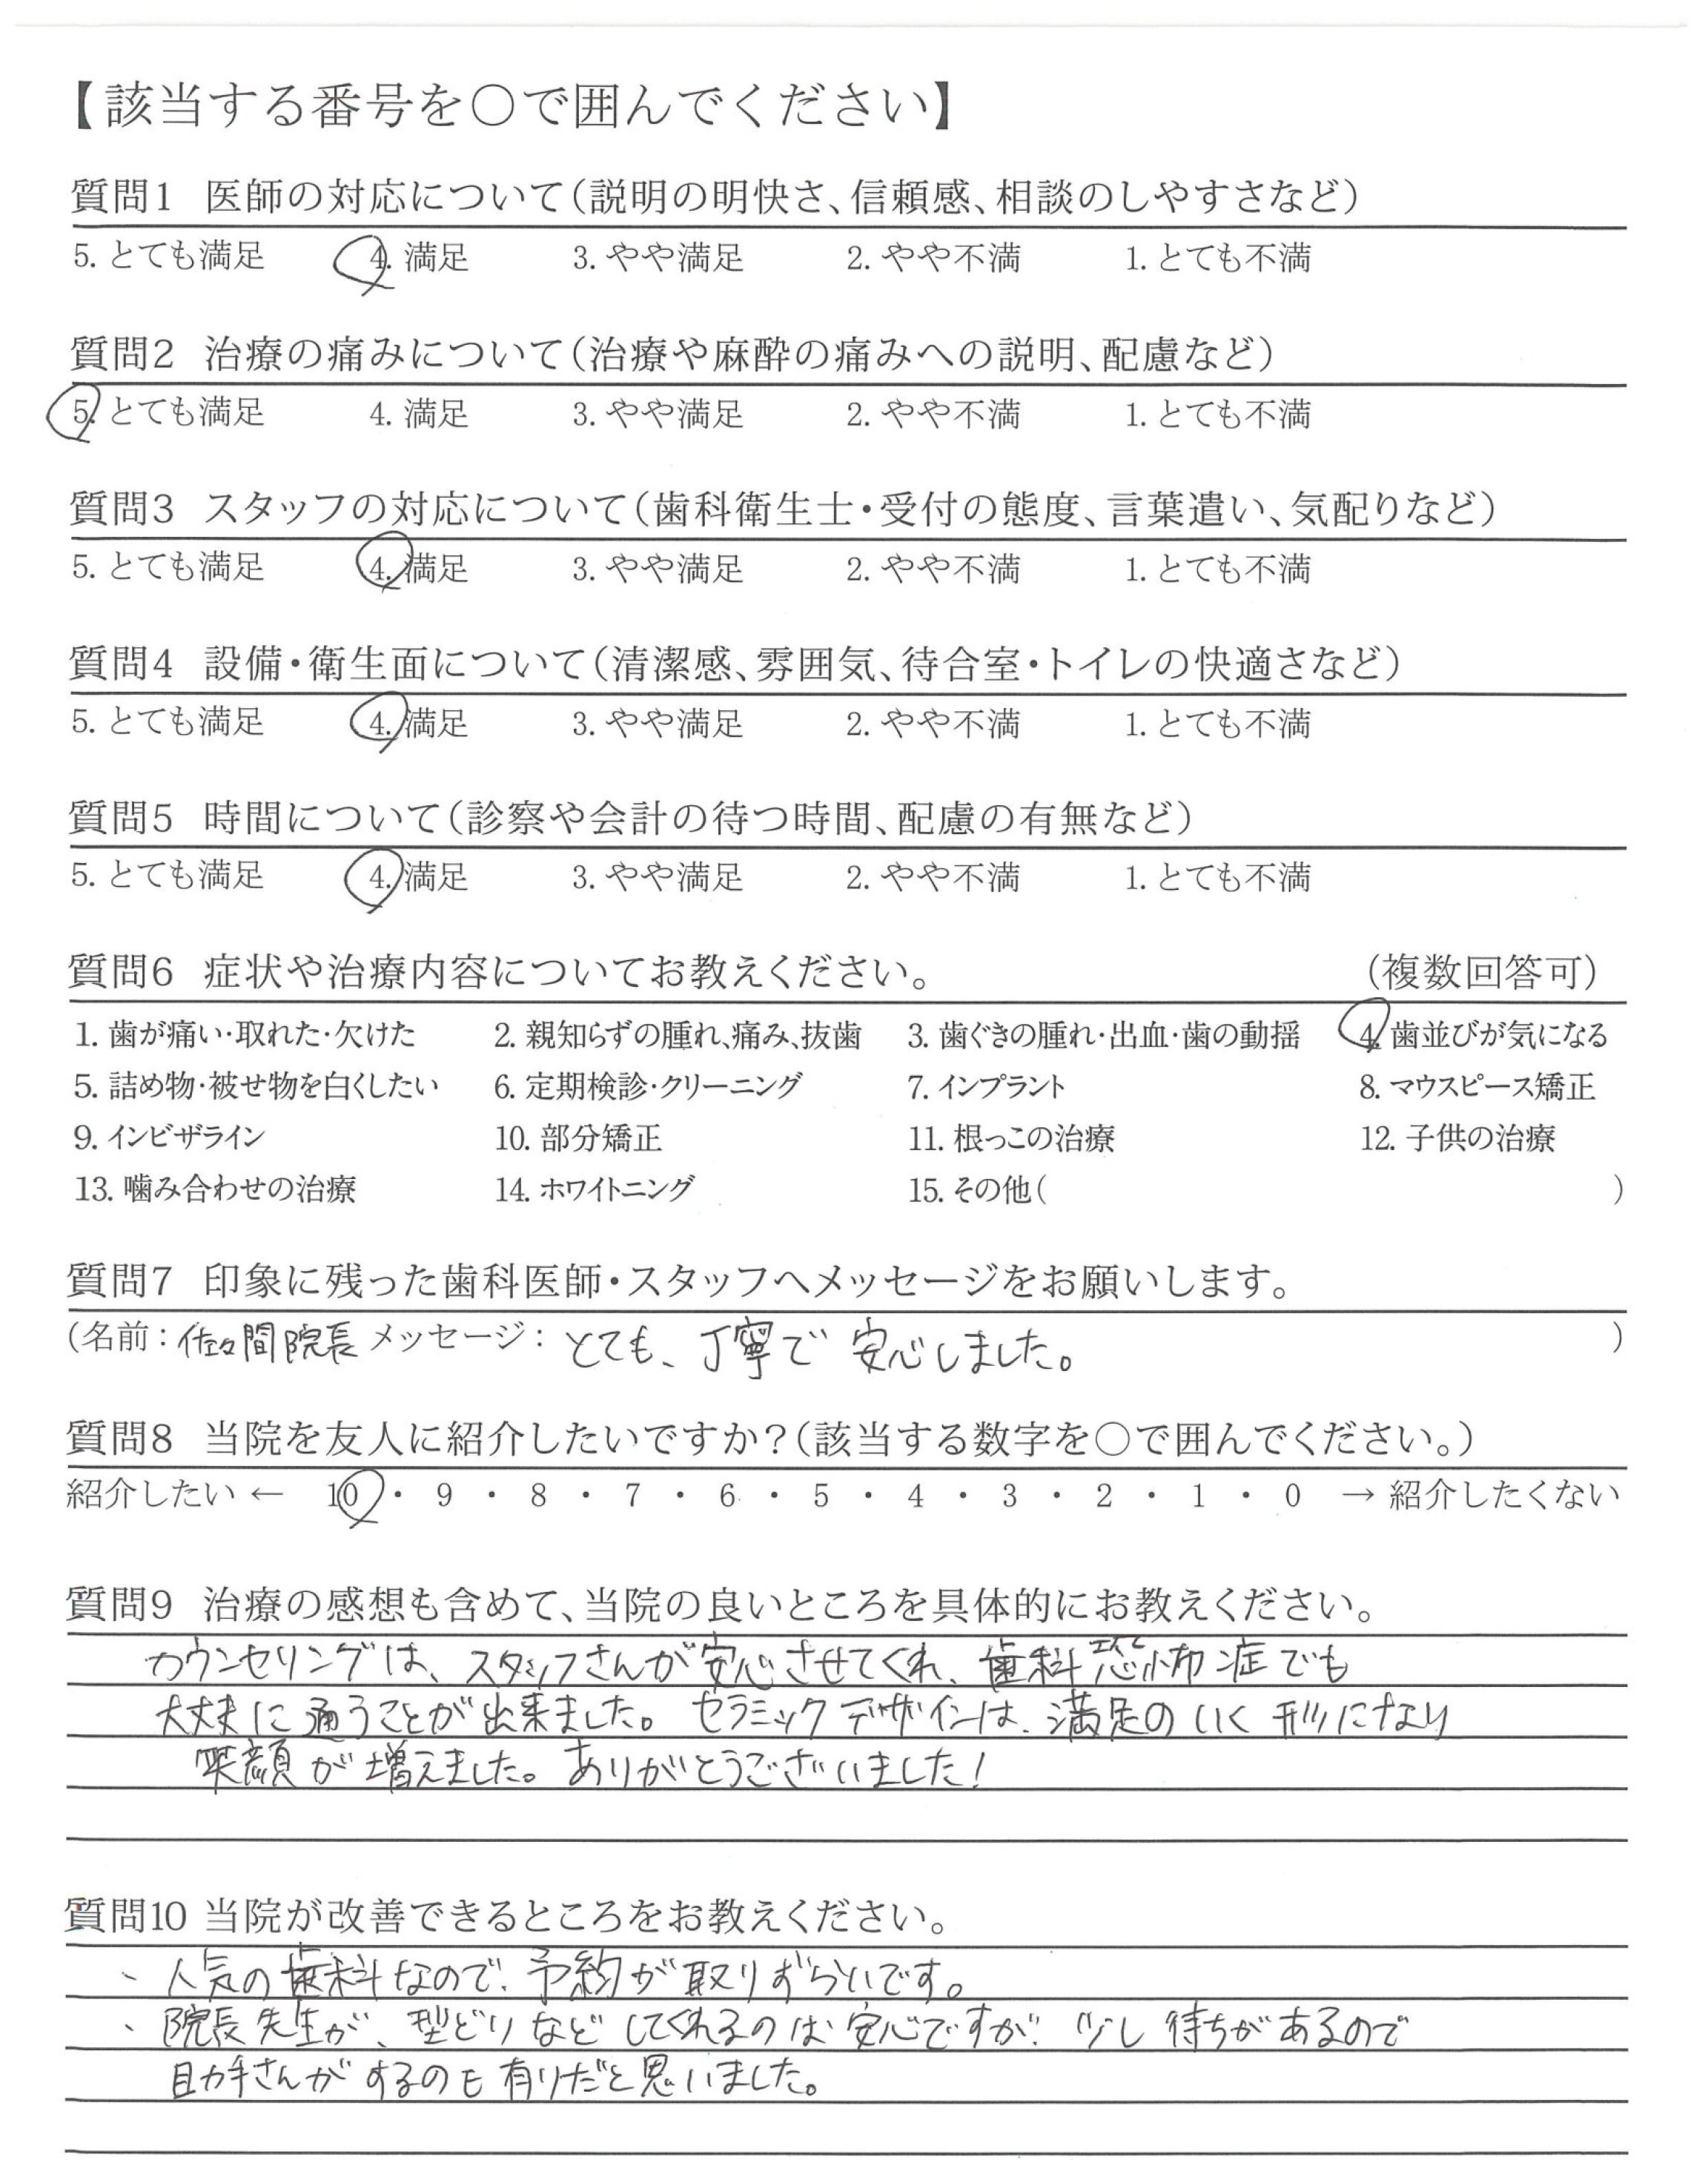 【該当する番号を〇で囲んでください】
質問1 医師の対応について(説明の明快さ、信頼感、相談のしやすさなど)
5. とても満足 4. 満足 3. やや満足 2. やや不満 1. とても不満
質問2 治療の痛みについて(治療や麻酔の痛みへの説明、配慮など)
5. とても満足 4. 満足 3. やや満足 2. やや不満 1. とても不満
質問3 スタッフの対応について(歯科衛生士・受付の態度、言葉遣い、気配りなど)
5. とても満足 4. 満足 3. やや満足 2. やや不満 1. とても不満
質問4 設備・衛生面について(清潔感、雰囲気、待合室・トイレの快適さなど)
5. とても満足 4. 満足 3. やや満足 2. やや不満 1. とても不満
質問5 時間について(診察や会計の待つ時間、配慮の有無など)
5. とても満足 4. 満足 3. やや満足 2. やや不満 1. とても不満
質問6 症状や治療内容についてお教えください。 (複数回答可)
1. 歯が痛い・取れた・欠けた 2. 親知らずの腫れ、痛み、抜歯 3. 歯ぐきの腫れ・出血・歯の動揺 4. 歯並びが気になる
5. 詰め物・被せ物を白くしたい 6. 定期検診・クリーニング 7. インプラント 8. マウスピース矯正
9. インビザライン 10. 部分矯正 11. 根っこの治療 12. 子供の治療
13. 噛み合わせの治療 14. ホワイトニング 15. その他( )
質問7 印象に残った歯科医師・スタッフへメッセージをお願いします。
(名前：佐々間院長 メッセージ：とても、丁寧で 安心しました。 )
質問8 当院を友人に紹介したいですか？(該当する数字を〇で囲んでください。)
紹介したい ← 10 ・ 9 ・ 8 ・ 7 ・ 6 ・ 5 ・ 4 ・ 3 ・ 2 ・ 1 ・ 0 → 紹介したくない
質問9 治療の感想も含めて、当院の良いところを具体的にお教えください。
カウンセリングは、スタッフさんが安心させてくれ、歯科恐怖症でも
大丈夫に通うことが出来ました。セラミックデザインは、満足のいく形になり
笑顔が増えました。ありがとうございました！
質問10 当院が改善できるところをお教えください。
、人気の歯科なので、予約が取りずらいです。
、院長先生が、型どりなどしてくれるのは安心ですが、少し待ちがあるので
助手さんがするのも有りだと思いました。